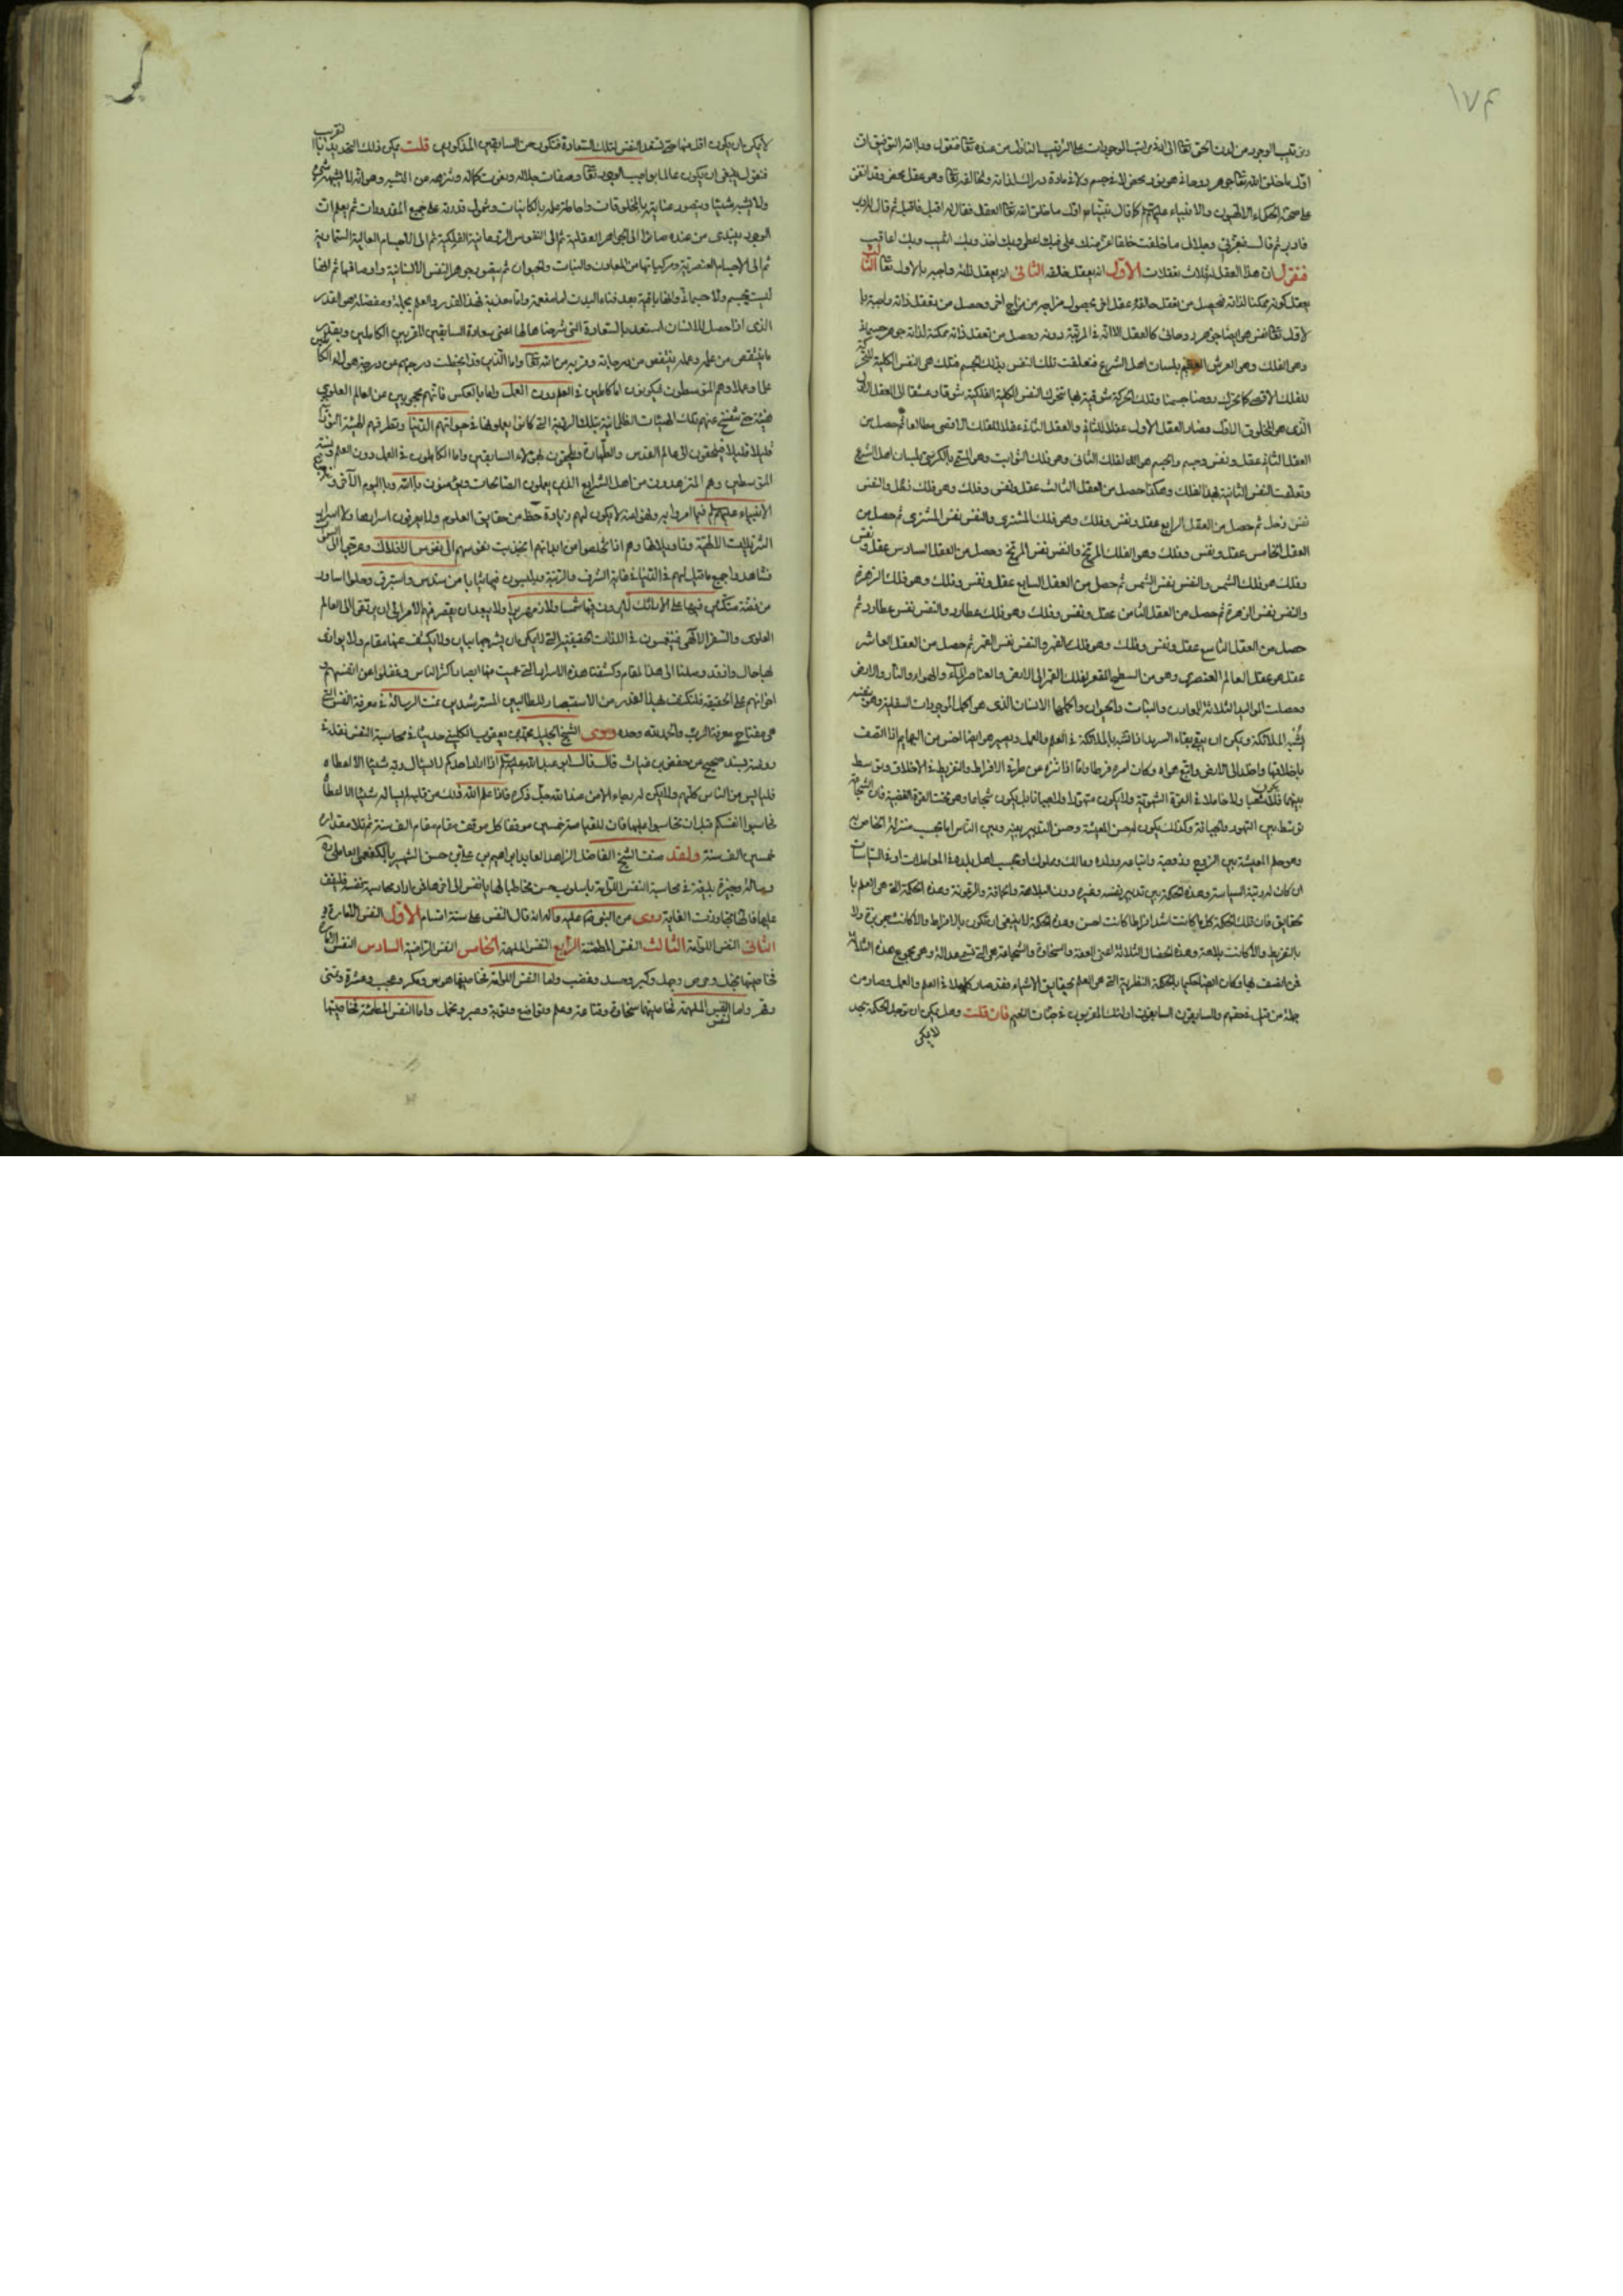 ١٧٤
وترتيب الوجود من لدن الحق تعالى الى الذى ترتيب الموجودات على الترتيب النازل من عنده تعالى فنقول وبالله التوفيق ان
اول ما خلق الله تعالى جوهر روحانى هو نور محض لا فى جسم ولا فى مادة دراك لذاته ولخالقه تعالى وهو عقل محض وقد اتفق
على صحة الحكماء الالهيون والانبياء عليهم كما قال نبينا اول ما خلق الله تعالى العقل فقال له اقبل فاقبل ثم قال له ادبر
فادبر ثم قال فبعزتى وجلالى ما خلقت خلقا اعز منك على فبك اعطى وبك اخذ وبك اثيب وبك اعاقب
فنقول ان هذا العقل له ثلاث تعقلات الاول انه يعقل خالقه الثانى انه يعقل ذاته واجبة بالاول تعالى الثالث
يعقل كونه ممكنا لذاته فحصل من تعقل خالقه عقل اخر كحصول سراج من سراج اخر وحصل من تعقل ذاته واجبة با
لاول تعالى نفس هى ايضا جوهر روحانى كالعقل الا انه فى المرتبة دونه وحصل من تعقل ذاته ممكنة لذاته جوهر جسمانى
وهو الفلك وهو العرش العظيم بلسان اهل الشرع فتعلقت تلك النفس بذلك الجسم فتلك هى النفس الكلية المحركة
للفلك الاقصى كما تحرك روحنا جسمنا وتلك الحركة شوقية بها تتحرك النفس الكلية الفلكية شوقا وعشقا الى العقل الاول
الذى هو المخلوق الاول وصار العقل الاول عقلا للثانى والعقل الثانى عقلا للفلك الاقصى مطالعا ثم حصل من
العقل الثانى عقل ونفس وجسم والجسم هو الفلك الثانى وهو فلك الثوابت وهو المسمى بالكرسى بلسان اهل الشرع
وتعلقت النفس الثانية بهذا الفلك وهكذا حصل من العقل الثالث عقل ونفس وفلك وهو فلك زحل والنفس
نفس زحل ثم حصل من العقل الرابع عقل ونفس وفلك وهو فلك المشترى والنفس نفس المشترى ثم حصل من
العقل الخامس عقل ونفس وفلك وهو الفلك المريخ والنفس نفس المريخ وحصل من العقل السادس عقل ونفس
وفلك هو فلك الشمس والنفس نفس الشمس ثم حصل من العقل السابع عقل ونفس وفلك وهو فلك الزهرة
والنفس نفس الزهرة ثم حصل من العقل الثامن عقل ونفس وفلك وهو فلك عطارد والنفس نفس عطارد ثم
حصل من العقل التاسع عقل ونفس وفلك وهو فلك القمر والنفس نفس القمر ثم حصل من العقل العاشر
عقل هو عقل العالم العنصرى وهو من السطح المقعر لفلك القمر الى الارض والعناصر الماء والهواء والنار والارض
وحصلت المواليد الثلاثة المعادن والنبات والحيوان واكملها الانسان الذى هو اكمل الموجودات السفلية وهو بنفسه
يشبه الملائكة ويمكن ان يبقى بقاء السرمد اذا تشبه بالملائكة فى العلم والعمل ويصير هو ايضا اخس من البهائم اذا اتصف
باخلاقها واخلد الى الارض واتبع هواه وكان امره فرطا واما اذا تنزه عن طرفى الافراط والتفريط فى الاخلاق وتوسط
بينهما فلا يكون شبقا ولا خاملا فى القوة الشهوية ولا يكون متهورا ولا جبانا بل يكون شجاعا وهو تحت القوة الغضبية فان الشجاعة
توسط بين التهور والجبانة وكذلك يكون له حسن المعيشة وحسن التدبير بينه وبين الناس بما يجب منزلة الخاص به
وهو علم المعيشة بين الزوج وزوجته واتباعه وولده ومالك ومملوك او بحسب اهل بلده فى المعاملات او فى السياسات
ان كان له رتبة السياسة وهذه الحكمة بين تدبير نفسه وغيره دون البلاهة والحماقة والرعونة وهذه الحكمة التى هى العلم با
لحقايق فان تلك الحكمة كل ما كانت اشد افراطا كانت احسن وهذه الحكمة لا ينبغى ان تكون بالافراط والا كانت جربزة ولا
بالتفريط والا كانت بلاهة وهذه الخصال الثلاثة اعنى العفة والسخاوة والشجاعة هى التى تسمى عدالة وهى مجموع هذه الثلاثة
فمن اتصف بها وكان ايضا حكيما بالحكمة النظرية التى هى العلم بحقايق الاشياء فقد صار كاملا فى العلم والعمل وصار من
جملة من قيل فى حقهم والسابقون السابقون اولئك المقربون فى جنات النعيم فان قلت وهل يمكن ان توجد الحكمة بحد
لا يمكن
لا يمكن ان يكون اقل منها حتى تستعد النفس لتلك السعادة فتكون من السابقين المذكورين قلت يمكن ذلك التحديد تقريبا
فنقول ينبغى ان يكون عالما بواجب الوجود تعالى وصفات جلاله ونعوت كماله وتنزهه عن التشبيه وهو انه لا يشبهه شىء
ولا يشبه شيئا ويتصور عنايته بالمخلوقات واحاطة علمه بالكائنات وشمول قدرته على جميع المقدورات ثم يعلم ان
الوجود يبتدى من عنده صائرا الى الجواهر العقلية ثم الى النفوس الروحانية الفلكية ثم الى الاجسام العالية السماوية
ثم الى الاجسام العنصرية ومركباتها من المعادن والنبات والحيوان ثم يتصور جوهر النفس الانسانية واوصافها ثم انها
ليست بجسم ولا جسمانى وانها باقية بعد فناء البدن اما منعمة واما معذبة فهذا القدر والعلم بجملة ومفصلة هو القدر
الذى اذا حصل للانسان استعد بالسعادة التى شرحنا حالها اعنى سعادة السابقين المقربين الكاملين وبقدر
ما ينتقص من علمه وعمله ينتقص من درجاته وقربه من الله تعالى واما الذين قد انحطت درجتهم عن درجة هؤلاء الكاملين
علما وعملا وهم المتوسطون فيكونون اما كاملين فى العلم دون العمل واما بالعكس فانهم محجوبون عن العالم العلوى
هنيئة حتى تنفسخ عنهم تلك الهيئات الظلمانية بتلك الردية التى كانوا يعملونها فى حيوتهم الدنيا وتطرقهم الهيئة النورانية
قليلا قليلا فيلتحقون الى عالم القدس والطهارة ويلحقون بهؤلاء السابقين واما الكاملون فى العمل دون العلم من
المتوسطين وهم المتزهدون من اهل الشرايع الذين يعملون الصالحات ويؤمنون بالله وباليوم الآخر ويتبعون
الانبياء عليهم فيما امروا به ونهوا عنه لا يكون لهم زيادة حظ من حقايق العلوم ولا يعرفون اسرارها ولا اسرار
التنزيلات الالهية وتاويلاتها وهم اذا تخلصوا من ابدانهم انجذبت نفوسهم الى نفوس الافلاك وعرجوا الى السموات
فشاهدوا جميع ما قيل لهم فى الدنيا فى غاية الشرف والزينة ويلبسون فيها ثيابا من سندس واستبرق وحلوا اساور
من فضة متكئين فيها على الارائك لا يرون فيها شمسا ولا زمهريرا ولا يبعد ان يفضى بهم الامر الى ان يرتقى الى العالم
العلوى والسفر الالهى فينغمسون فى اللذات الحقيقية التى لا يمكن ان يشرحها بيان ولا يكشف عنها مقام ولا يوازى
بها حال واذ قد وصلنا الى هذا المقام وكشفنا هذه الاسرار التى عميت عنها ابصار اكثر الناس وغفلوا عن انفسهم و
اخوانهم على الحقيقة فلنكتف بهذا القدر من الاستبصار للطالبين المسترشدين تمت الرسالة فى معرفة النفس التى
هى مفتاح معرفة الرب والحمد لله وحده وروى الشيخ الجليل محمد بن يعقوب الكلينى حديثا فى محاسبة النفس نقله فى
روضته بسند صحيح عن حفص بن غياث قال قال ابو عبد الله اذا اراد احدكم ان لا يسال ربه شيئا الا اعطاه
فليايس من الناس كلهم ولا يكن له رجاء الا من عند الله جل ذكره فاذا علم الله ذلك من قلبه لم يساله شيئا الا اعطاه
فحاسبوا انفسكم قبل ان تحاسبوا عليها فان للقيامة خمسين موقفا كل موقف مقام الف سنة ثم تلا مقداره
خمسين الف سنة ولقد صنف الشيخ الفاضل الزاهد العابد ابراهيم بن على بن حسن الشهير بالكفعمى العاملى
رسالة وجيزة بليغة فى محاسبة النفس اللوامة باسلوب حسن مخاطبا لها يا نفس الى اخرها فمن اراد محاسبة نفسه فليقف
عليها فانها تجاوزت الغاية روى عن النبى صلى الله عليه وآله انه قال النفس على ستة اقسام الاول النفس الامارة
الثانى النفس اللوامة الثالث النفس المطمئنة الرابع النفس الملهمة الخامس النفس الراضية السادس النفس
فخاصيتها بخل وحرص وجهل وكبر وحسد وغضب واما النفس اللوامة فخاصيتها هوس ومكر وعجب وعشرة وتمنى
وقهر واما النفس الملهمة فخاصيتها سخاوة وقناعة وعلم وتواضع وتوبة وصبر وتحمل واما النفس المطمئنة فخاصيتها